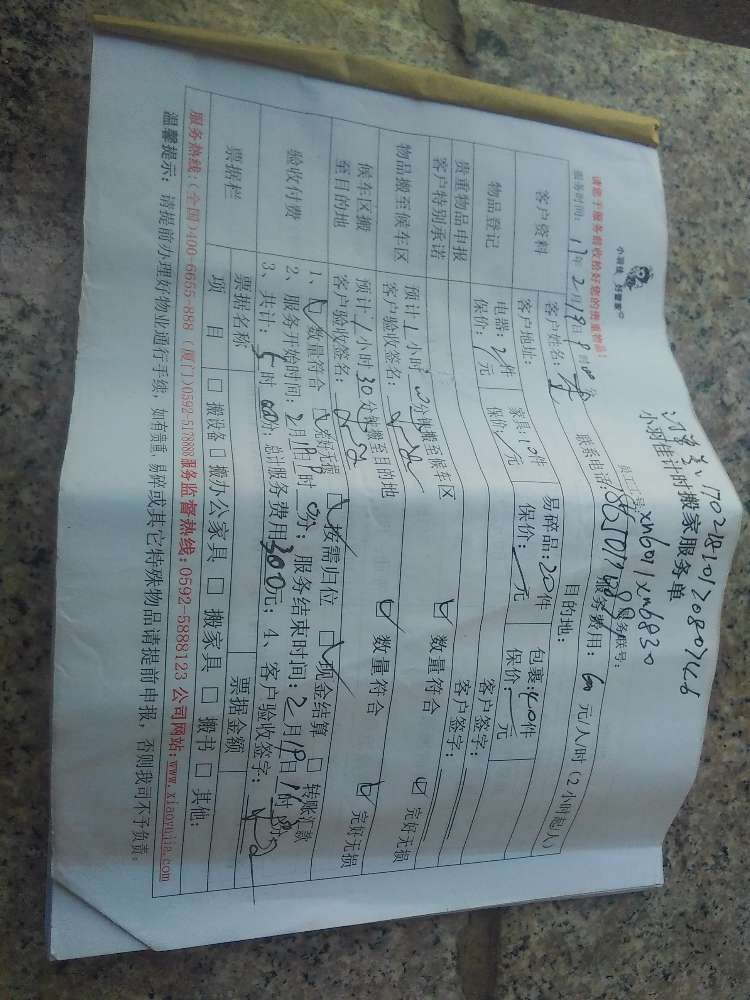 订单号:17021810120807446
小羽佳计时搬家服务单
小羽佳 好管家
员工工号:xm6011 xm6830
请您于服务前收检好您的贵重物品!
服务时间:17年2月18日9时00分
服务费用:60元/人/时(2小时起/人)
客户资料
客户姓名:
联系电话:
客户地址:
目的地:
物品登记
电器:2件 家具:10件 易碎品:20件 包裹:40件
保价:/元 保价:/元 保价:元 保价:元
贵重物品申报
客户特别承诺
客户签字:
物品搬至候车区
预计1小时00分钟搬至候车区
☑ 数量符合 ☑ 完好无损
客户验收签名:
客户签字:
候车区搬至目的地
预计1小时30分钟搬至目的地
☑ 数量符合 ☑ 完好无损
客户验收签名:
验收付费
1、☑ 数量符合 ☑ 完好无损 ☑ 按需归位 ☑ 现金结算 □ 转账汇款
2、服务开始时间:2月18日9时00分;服务结束时间:2月18日
3、共计:5时00分;总计服务费用300元;4、客户验收签字:
票据栏
票据名称
票据金额
项 目 □ 搬设备 □ 搬办公家具 □ 搬家具 □ 搬书 □ 其他:
服务热线:(全国)400-6655-888 (厦门)0592-5178888服务监督热线:0592-5888123 公司网站:www.xiaoyujia.com
温馨提示:请提前办理好物业通行手续,如有贵重、易碎或其它特殊物品请提前申报,否则我司不予负责。